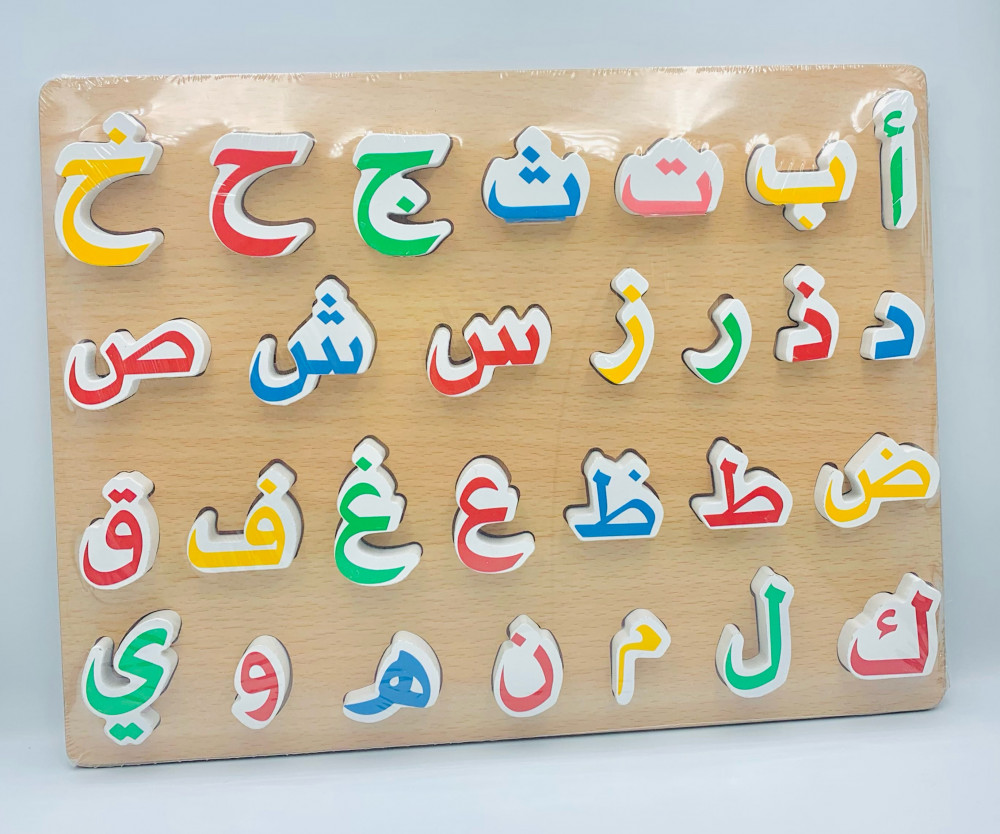 أ ب ت ث ج ح خ
د ذ ر ز س ش ص
ض ط ظ ع غ ف ق
ك ل م ن هـ و ي